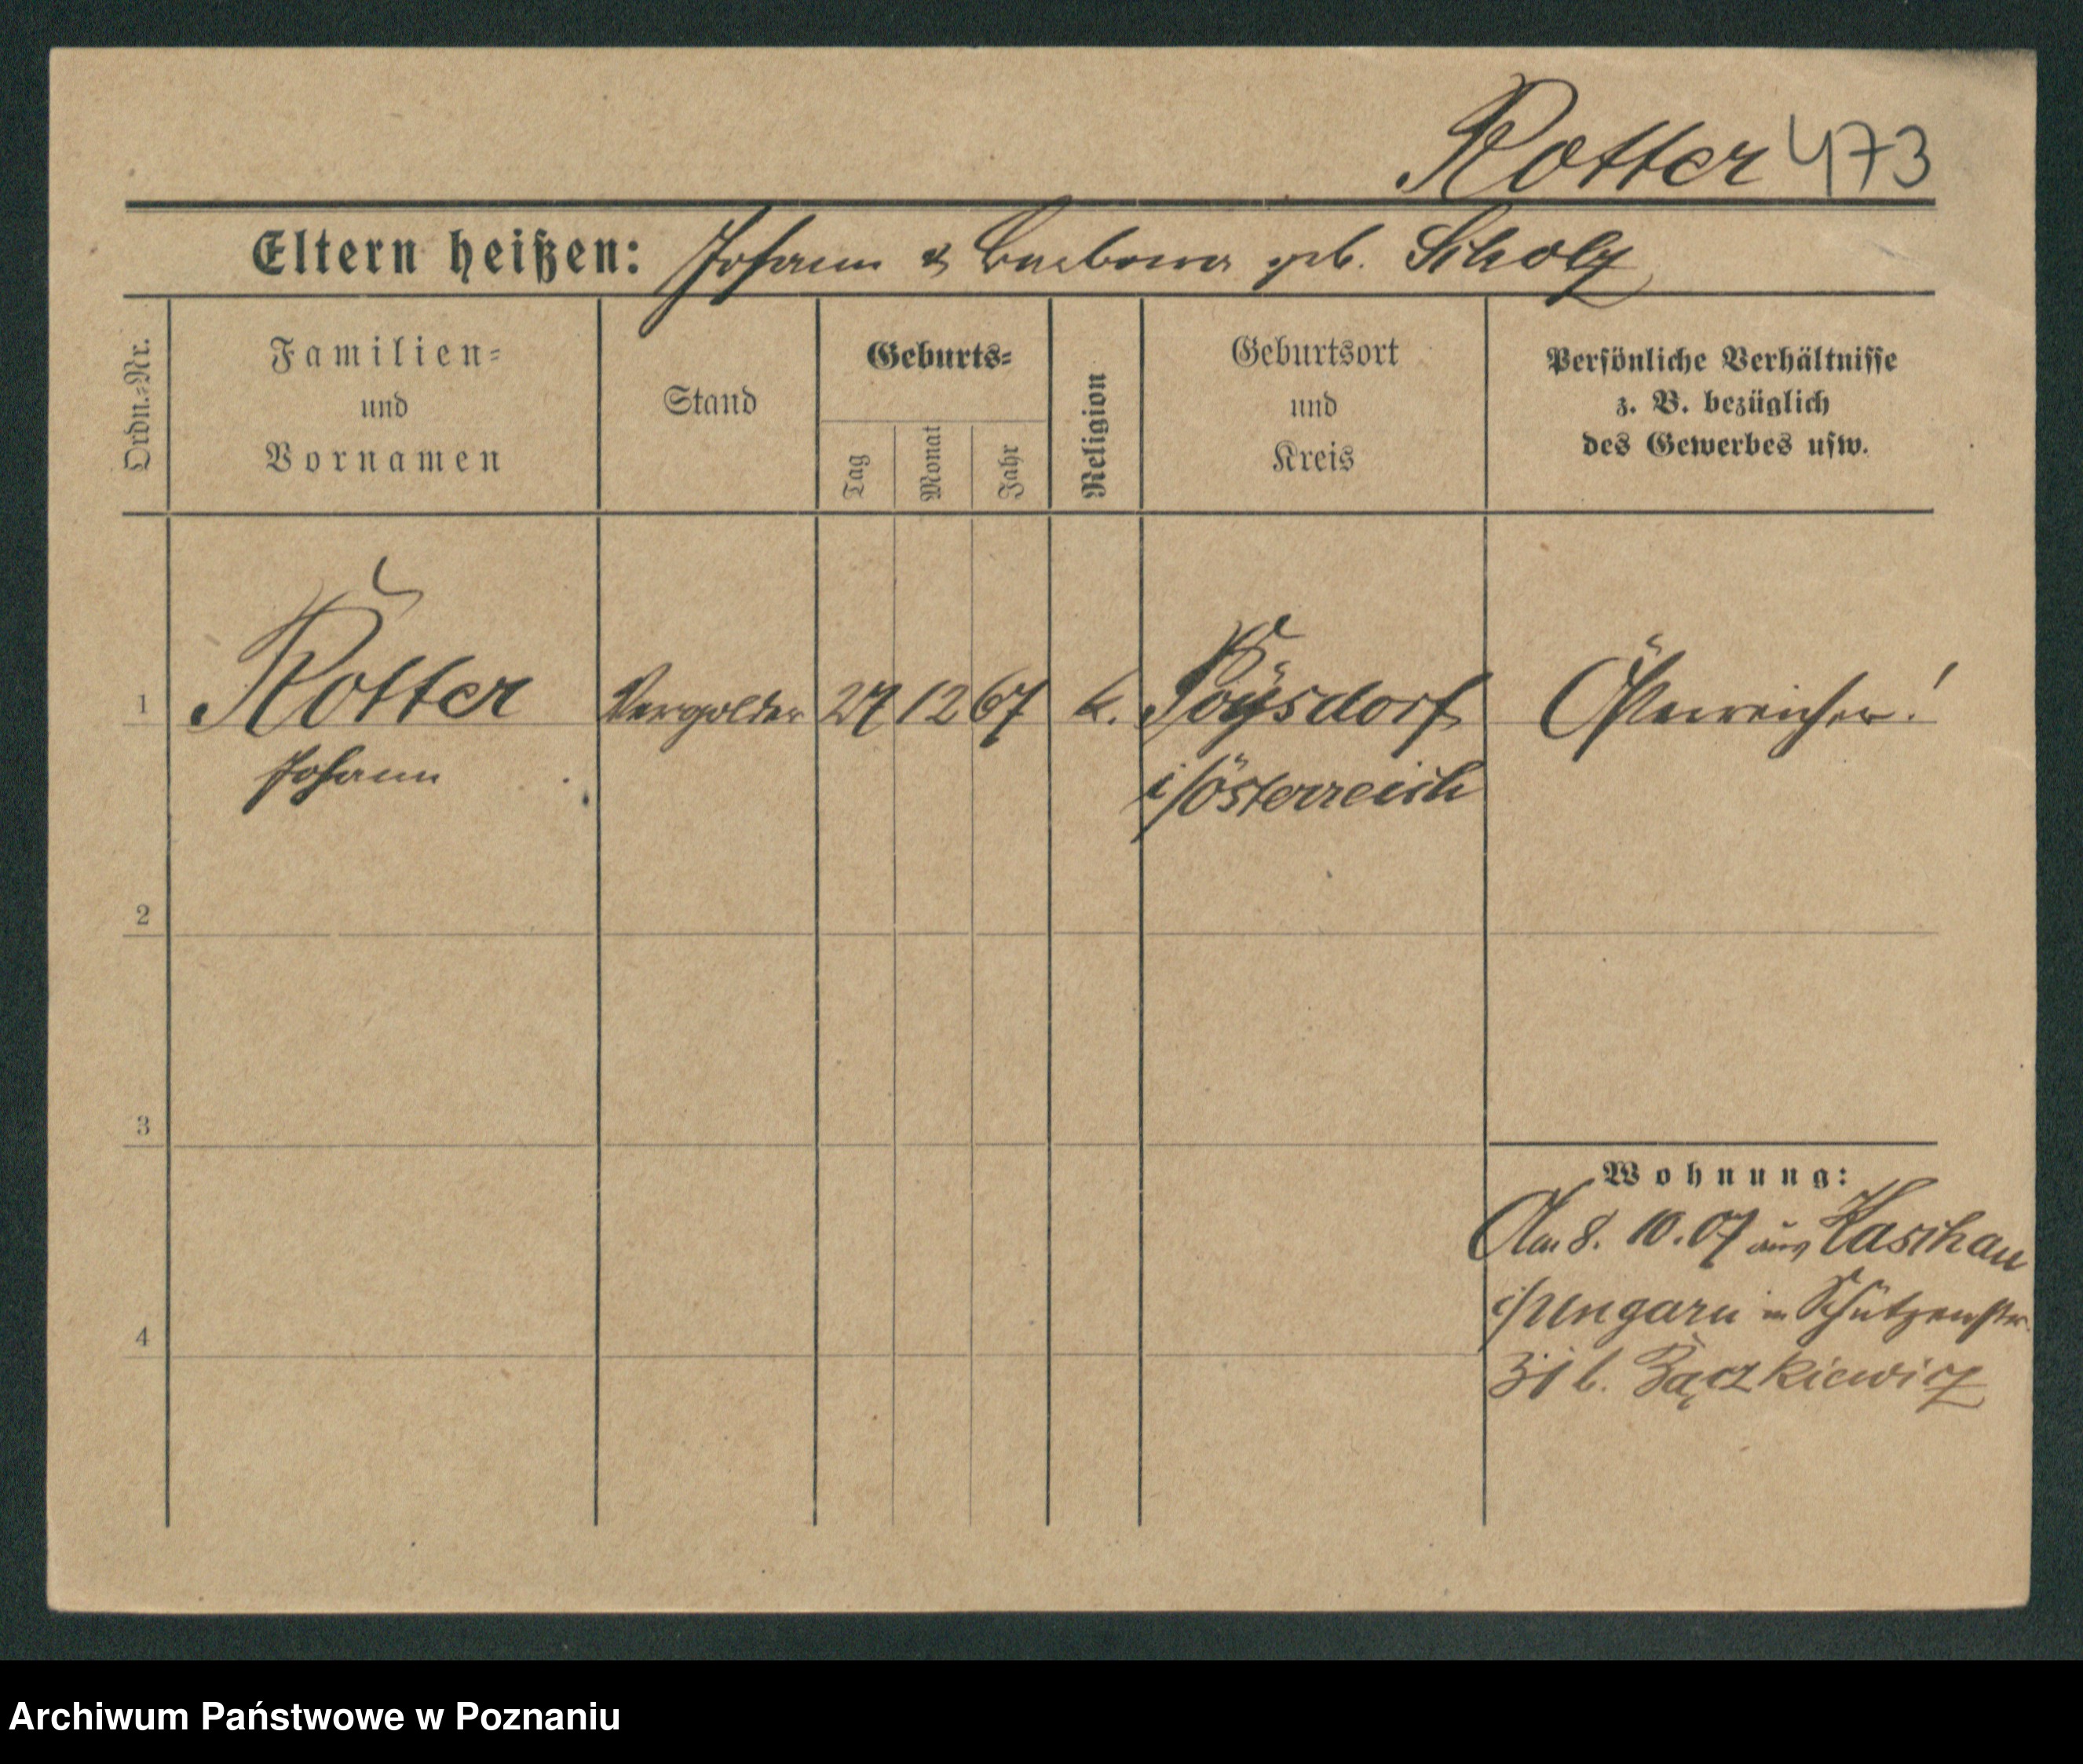 Rotter 473
Eltern heißen: Johann & Barbara geb. Scholz
Ordn.=Nr.
Familien=
und
Vornamen
Stand
Geburts=
Tag
Monat
Jahr
Religion
Geburtsort
und
Kreis
Persönliche Verhältnisse
z. B. bezüglich
des Gewerbes usw.
1 Rotter Vergolder 27 12 67 k. Poÿsdorf Österreicher!
Johann i/Österreich
2
3
Wohnung:
Am 8. 10. 07 aus Kaschau
i/Ungarn in Schützenstr.
4
31 b. Bączkiewicz
Archiwum Państwowe w Poznaniu